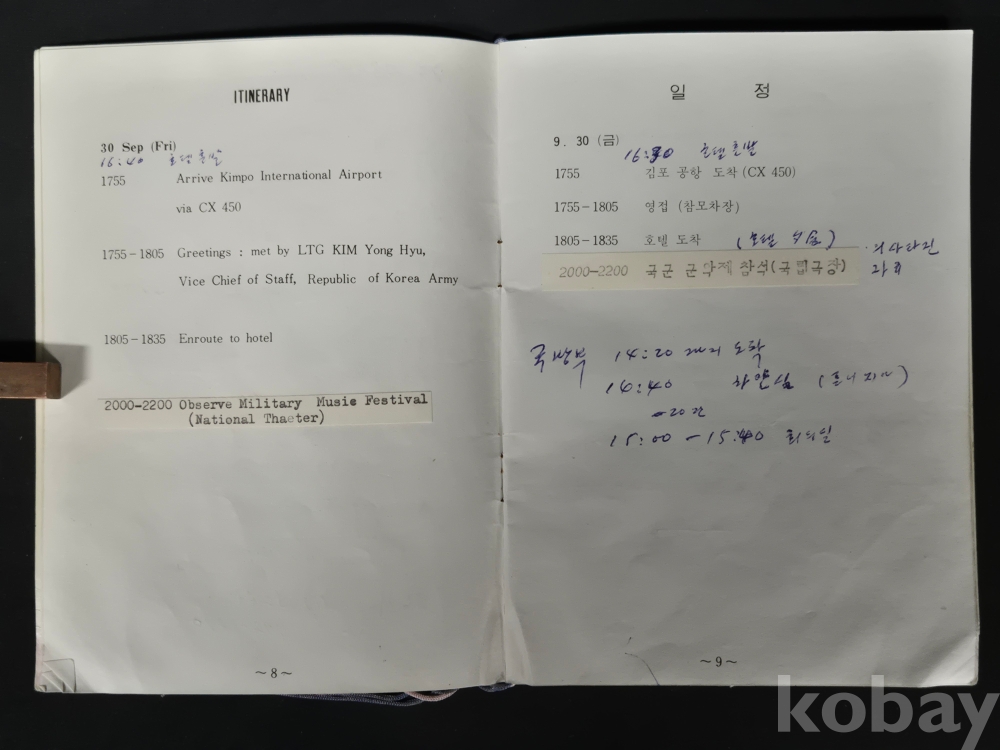 ITINERARY
30 Sep (Fri)
16:40 호텔출발
1755 Arrive Kimpo International Airport
via CX 450
1755-1805 Greetings : met by LTG KIM Yong Hyu,
Vice Chief of Staff, Republic of Korea Army
1805-1835 Enroute to hotel
2000-2200 Observe Military Musie Festival
(National Thaeter)
~8~
일 정
9. 30 (금)
호텔출발
1755 김포 공항 도착(CX 450)
1755-1805 영접 (참모차장)
1805-1835 호텔 도착 (호텔
2000-2200 국군 군악제 참석(국립극장)
국방부 14:20 까지 도착
16:40
20분
15:00 - 15:40 회의실
~9~
kobay